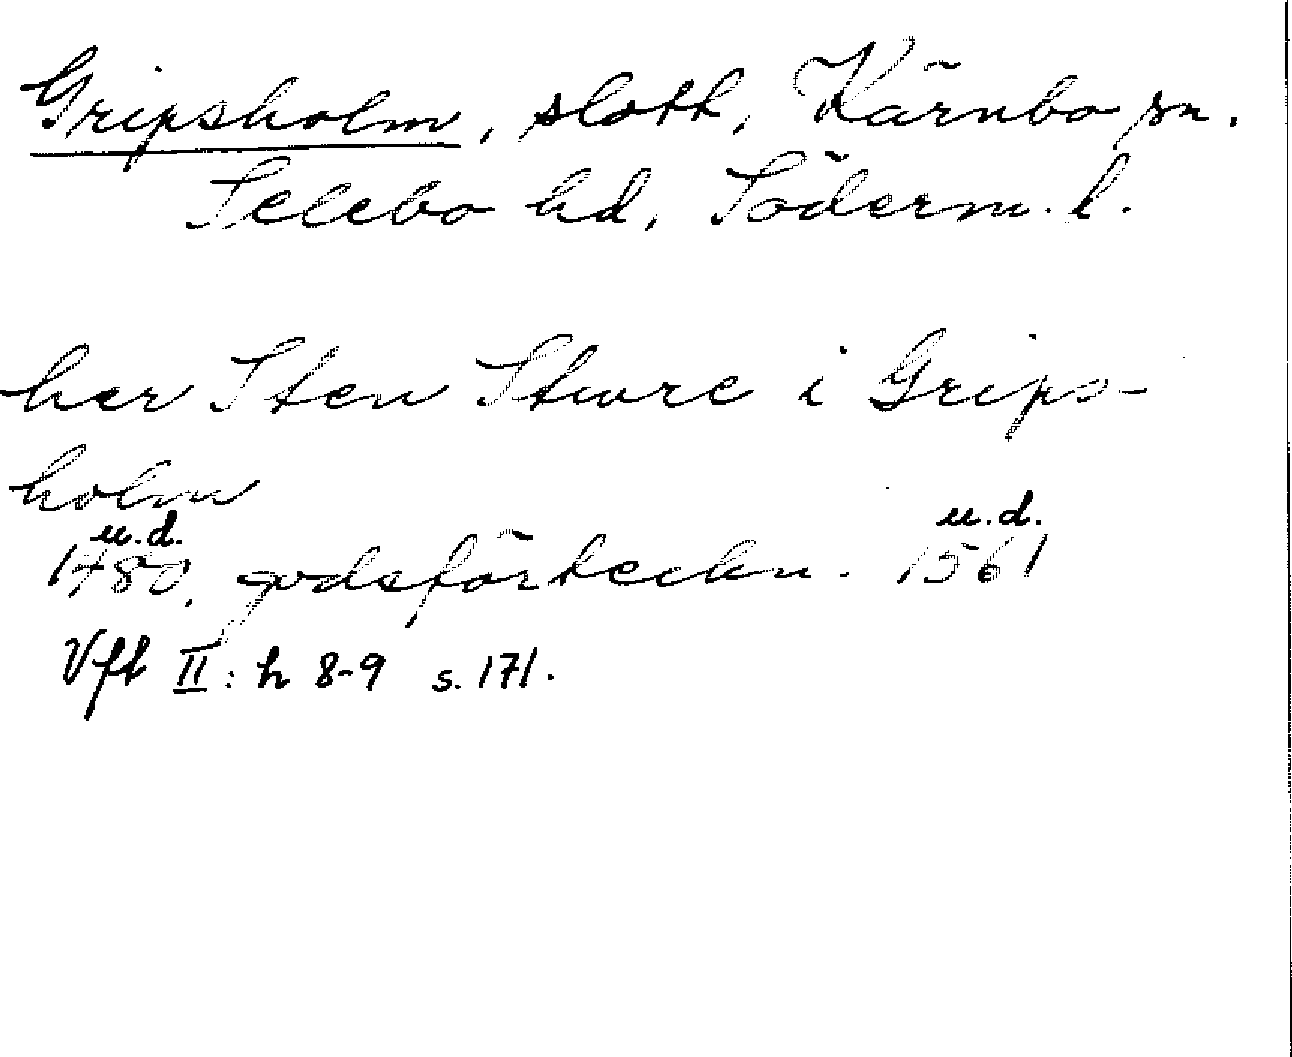 Gripsholm, slott, Kärnbo sn.
Selebo hd, Söderm. l.
her Sten Stwre i Grips-
holm
u.d. u.d.
1480, godsförteckn. 1561
Vft II: h 8-9 s. 171.